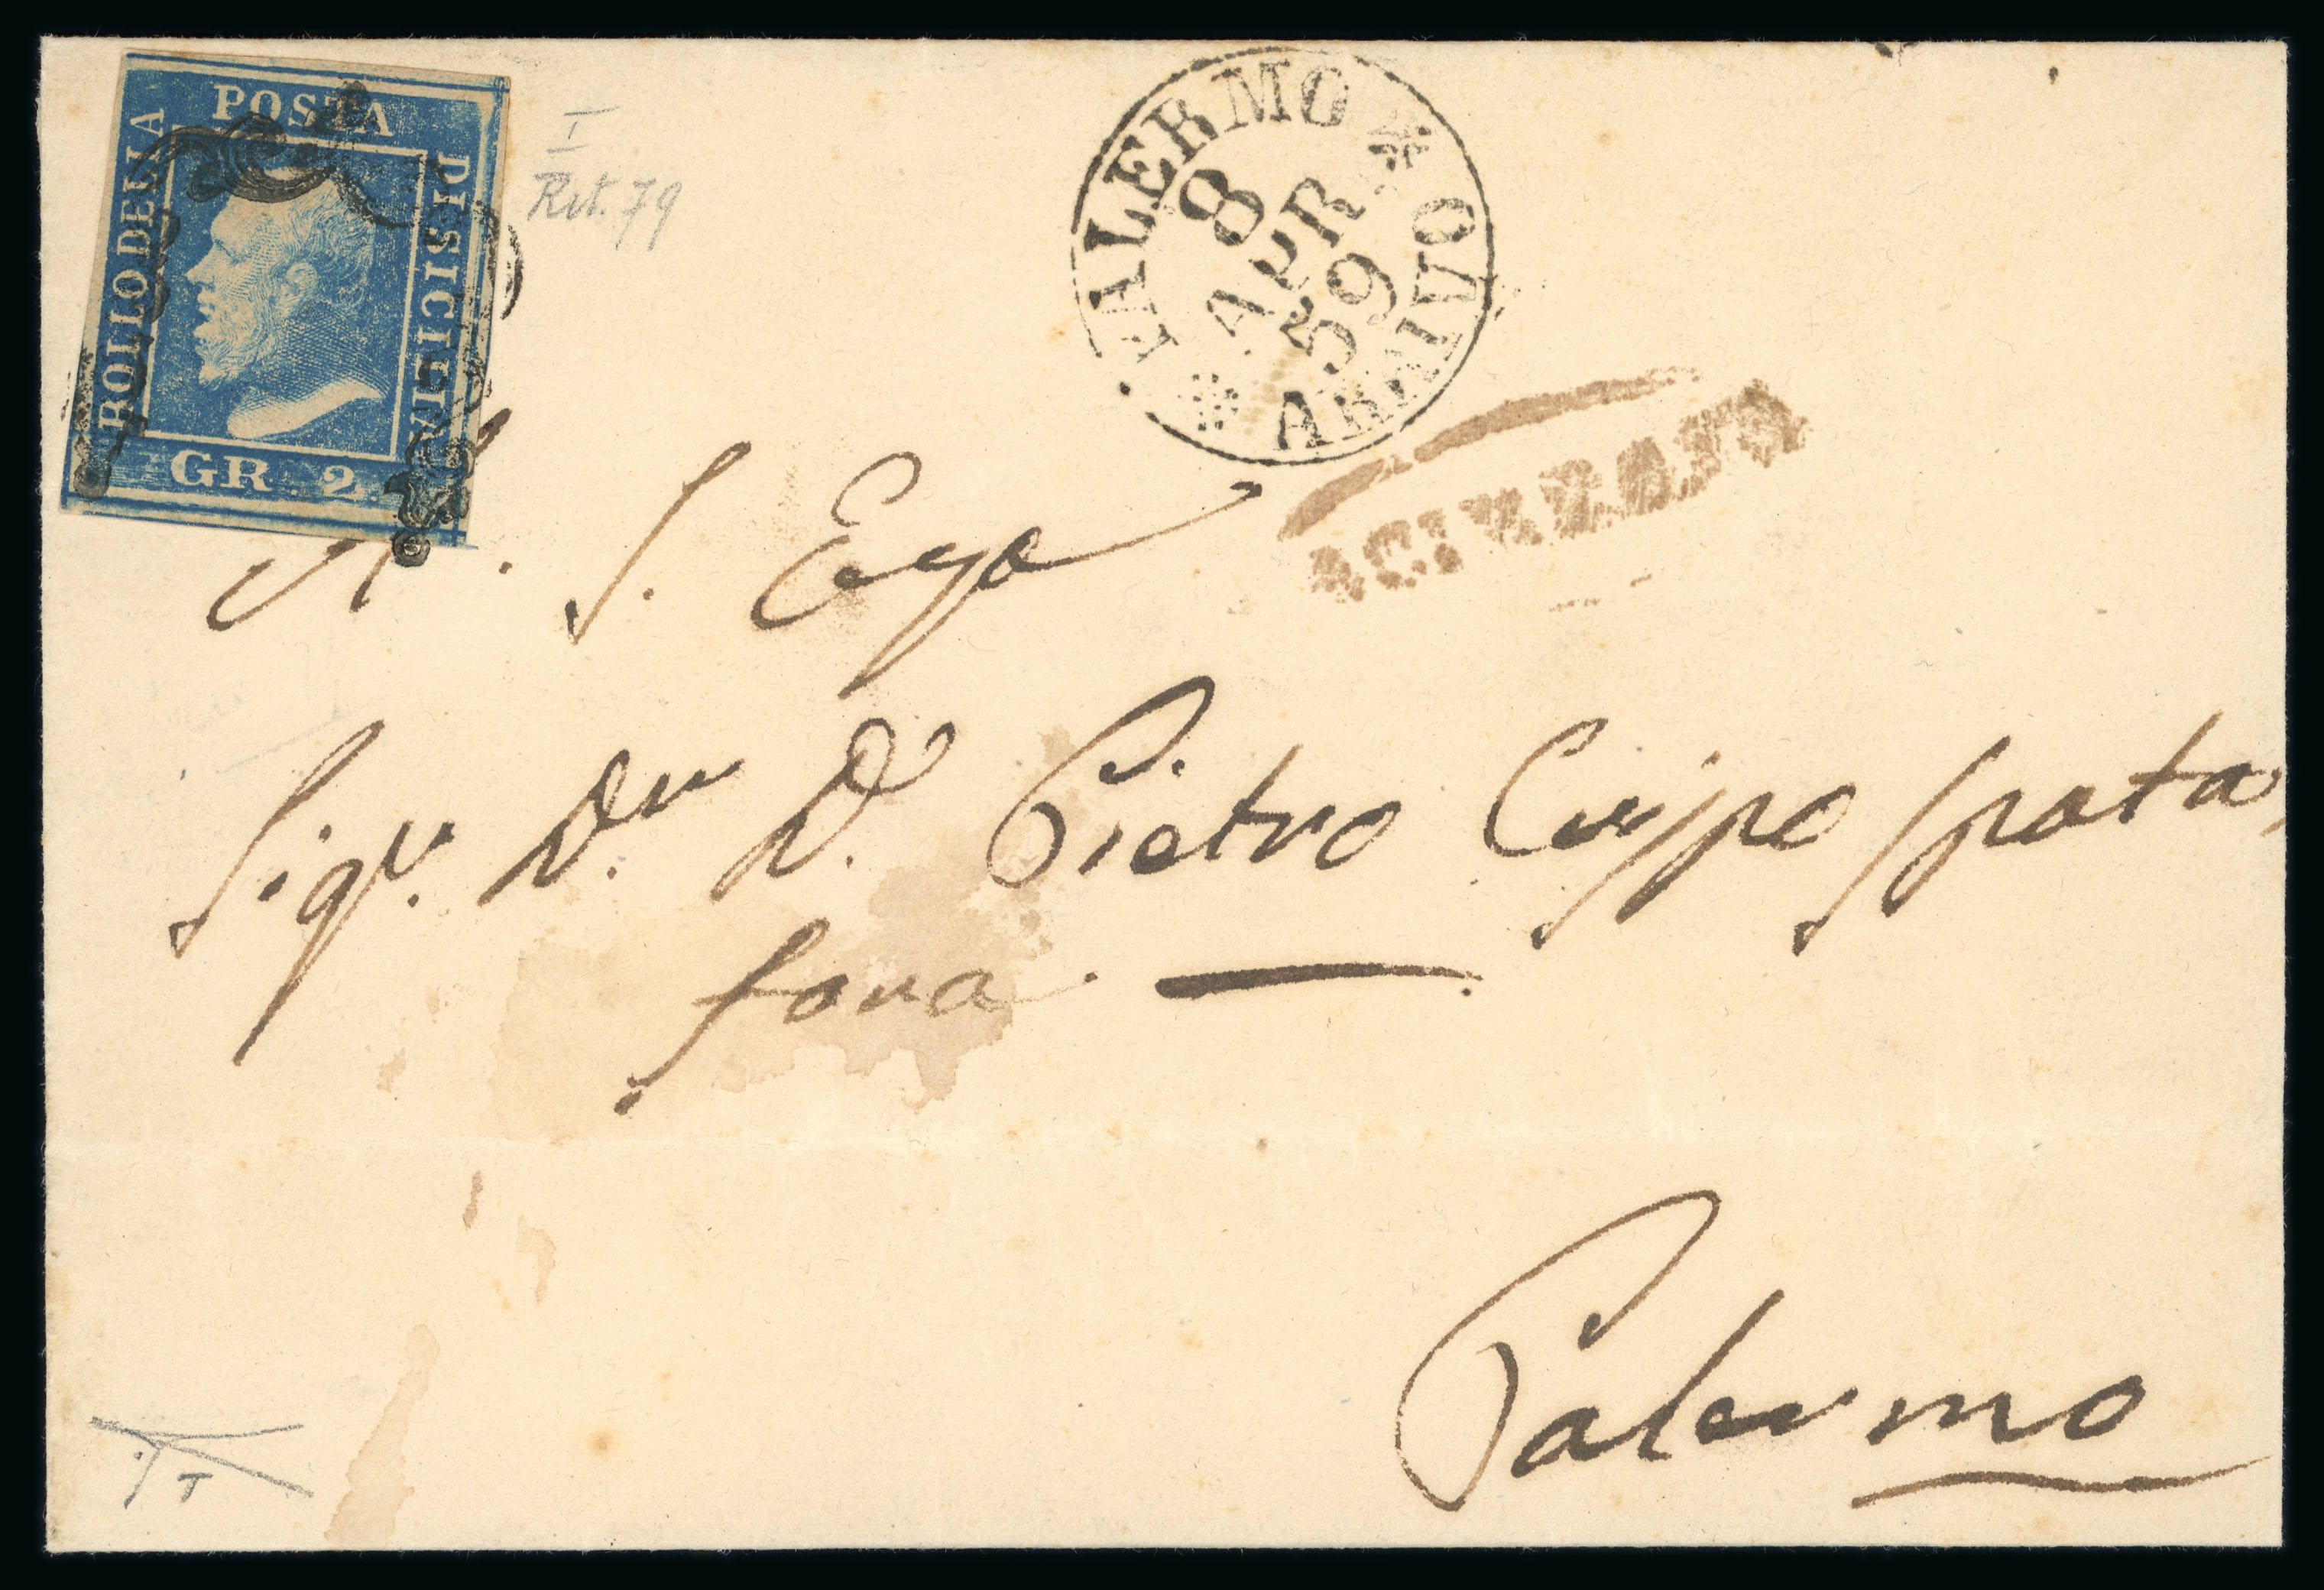 POSTA
BOLLO DELLA
DI SICILIA
GR. 2.
I
Rit. 79
PALERMO
8
APR.
59
ARRIVO
A. S. Ecza
Sigr. Dn D. Pietro Crispo Spata,
fora.
Palermo